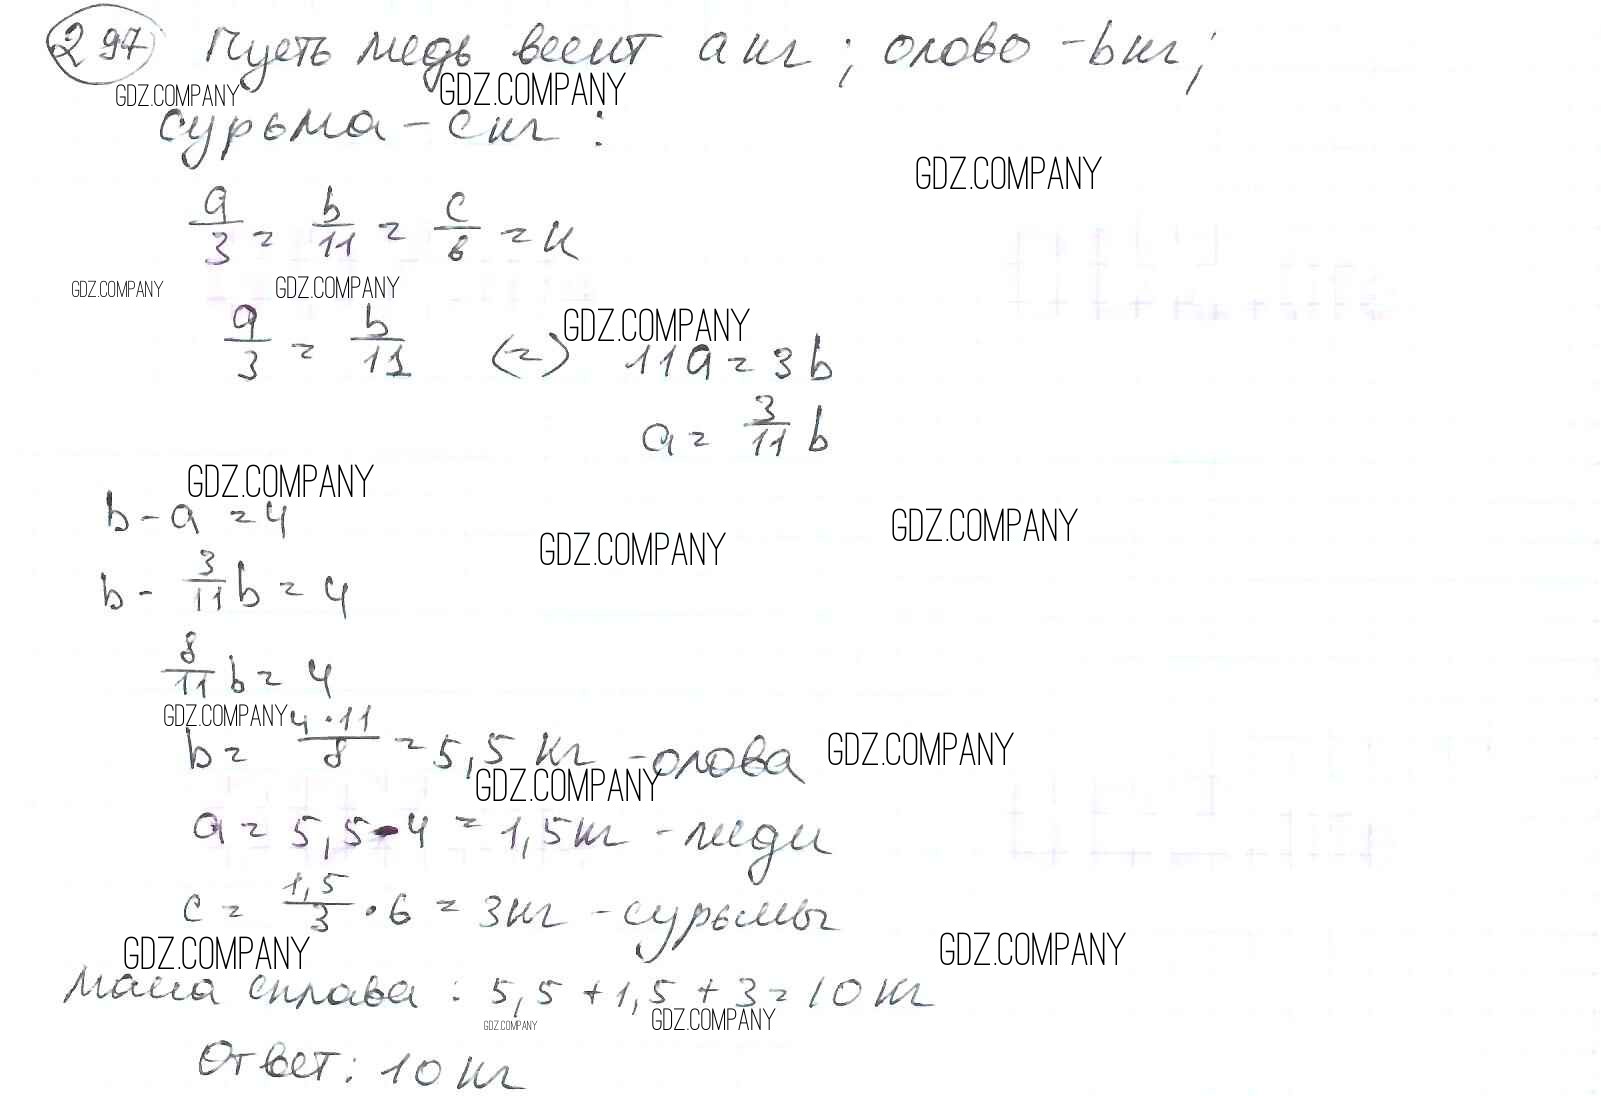 297 Пусть медь весит a кг; олово - b кг;
GDZ.COMPANY GDZ.COMPANY
сурьма - c кг:
GDZ.COMPANY
a/3 = b/11 = c/6 = k
GDZ.COMPANY GDZ.COMPANY
GDZ.COMPANY
a/3 = b/11 (=) 11a = 3b
a = 3/11 b
GDZ.COMPANY
b - a = 4
GDZ.COMPANY GDZ.COMPANY
b - 3/11 b = 4
8/11 b = 4
GDZ.COMPANY
b = 4·11/8 = 5,5 кг - олова
GDZ.COMPANY
GDZ.COMPANY
a = 5,5 - 4 = 1,5 кг - меди
c = 1,5/3 · 6 = 3 кг - сурьмы
GDZ.COMPANY GDZ.COMPANY
Масса сплава: 5,5 + 1,5 + 3 = 10 кг
GDZ.COMPANY GDZ.COMPANY
Ответ: 10 кг